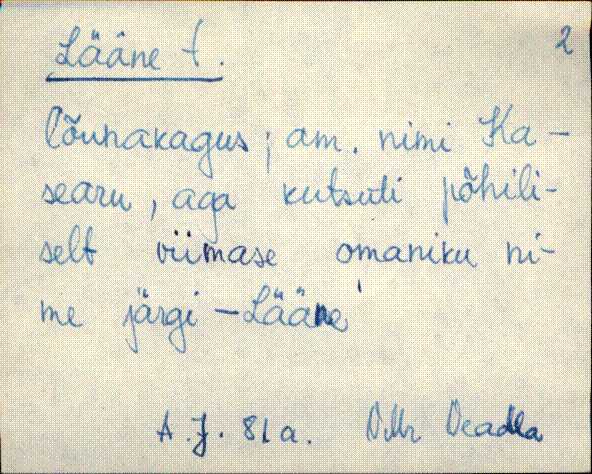 Lääne t. 2
Lõunakagus; am. nimi Ka-
searu, aga kutsuti põhili-
selt viimase omaniku ni-
me järgi - Lääne
A. J. 81 a.